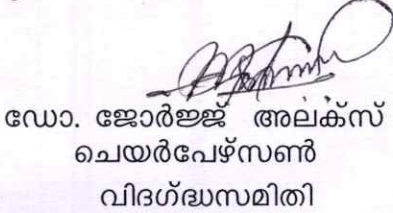 ഡോ. ജോർജ്ജ് അലക്സ്
ചെയർപേഴ്സൺ
വിദഗ്ദ്ധസമിതി